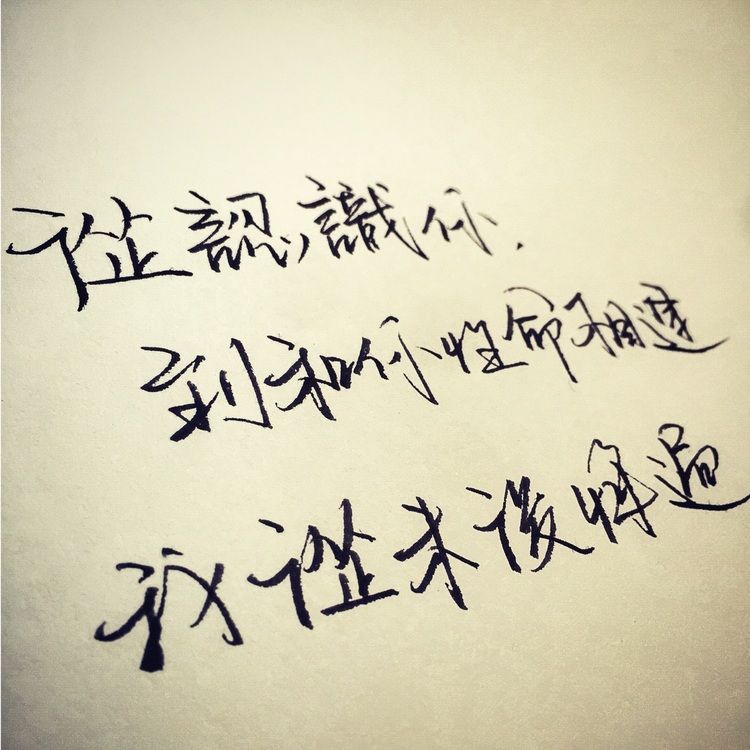 從認識你，
到和你性命相連
我從未後悔過